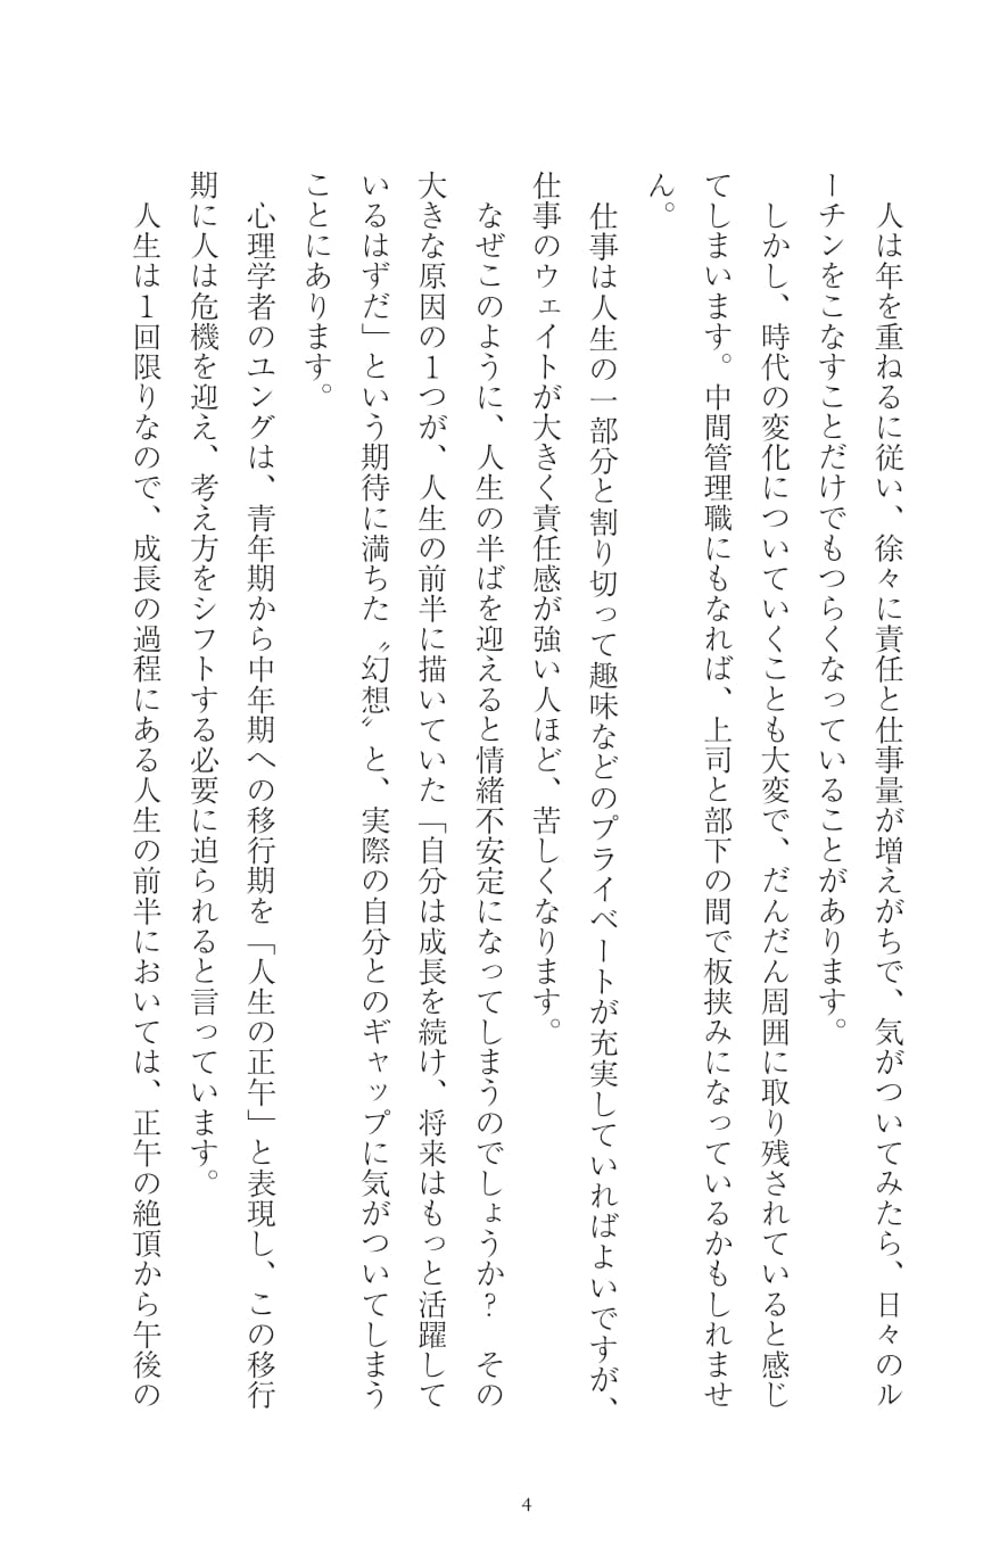 人は年を重ねるに従い、徐々に責任と仕事量が増えがちで、気がついてみたら、日々のル
ーチンをこなすことだけでもつらくなっていることがあります。
　しかし、時代の変化についていくことも大変で、だんだん周囲に取り残されていると感じ
てしまいます。中間管理職にもなれば、上司と部下の間で板挟みになっているかもしれませ
ん。
　仕事は人生の一部分と割り切って趣味などのプライベートが充実していればよいですが、
仕事のウェイトが大きく責任感が強い人ほど、苦しくなります。
　なぜこのように、人生の半ばを迎えると情緒不安定になってしまうのでしょうか？　その
大きな原因の１つが、人生の前半に描いていた「自分は成長を続け、将来はもっと活躍して
いるはずだ」という期待に満ちた〝幻想〟と、実際の自分とのギャップに気がついてしまう
ことにあります。
　心理学者のユングは、青年期から中年期への移行期を「人生の正午」と表現し、この移行
期に人は危機を迎え、考え方をシフトする必要に迫られると言っています。
　人生は１回限りなので、成長の過程にある人生の前半においては、正午の絶頂から午後の
4